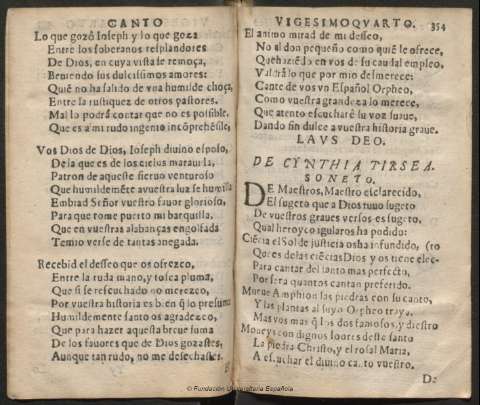 CANTO
Lo que gozô Ioseph y lo que goza
Entre los soberanos resplandores
De Dios, en cuya vista se remoça,
Beuiendo sus dulcissimos amores:
Quiê no ha salido de vna humilde choça,
Entre la rustiquez de otros pastores.
Mal lo podrâ contar que no es possible.
Que es a mi rudo ingenio incôprehêsile,
Vos Dios de Dios, Ioseph diuino esposo,
De la que es de los cielos marauilla,
Patron de aqueste sieruo venturoso
Que humildemête a vuestra luz se humilla
Embiad Señor vuestro fauor glorioso,
Para que tome puerto mi barquilla.
Que en vuestras alabanças engolfada
Temio verse de tantas anegada.
Recebid el desseo que os ofrezco,
Entre la ruda mano, y tosca pluma,
Que si se rescuchado no merezco,
Por vuestra historia es bien q̃ lo presuma
Humildemente santo os agradezco,
Que para hazer aquesta breue suma
De los fauores que de Dios gozastes,
Aunque tan rudo, no me desechastes.
VIGESIMOQVARTO. 354
El animo mirad de mi desseo,
No al don pequeño como quiê le ofrece,
Que haziêdo en vos de su caudal empleo,
Valdrâ lo que por mio desmerece:
Cante de vos vn Español Orpheo,
Como vuestra grandeza lo merece,
Que atento escucharê su voz suaue,
Dando fin dulce a vuestra historia graue.
LAVS DEO.
DE CYNTHIA TIRSEA.
SONETO.
DE Maestros, Maestro esclarecido,
El sugeto que a Dios tuuo sugeto
De vuestros graues versos es sugeto,
Qual heroyco igularos ha podido:
Ciêcia el Sol de justicia os ha infundido, (to
Que es de las ciêcias Dios y os tiene elec-
Para cantar del santo mas perfecto,
Por ser a quantos cantan preferido.
Mueue Amphion las piedras con su canto,
Y las plantas al suyo Orpheo traya,
Mas vos mas q̃ los dos famoso, y diestro
Moueys con dignos loores deste santo
La piedra Christo, y el rosal Maria,
A escuchar el diuino canto vuestro.
De
© Fundación Universitaria Española